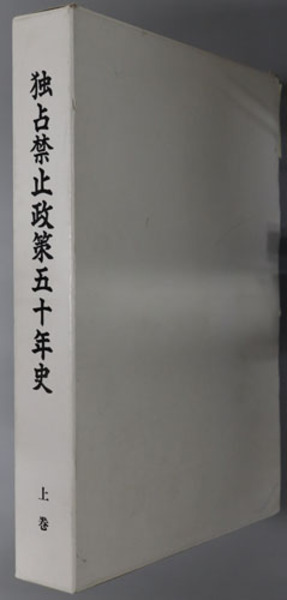 独占禁止政策五十年史
上巻